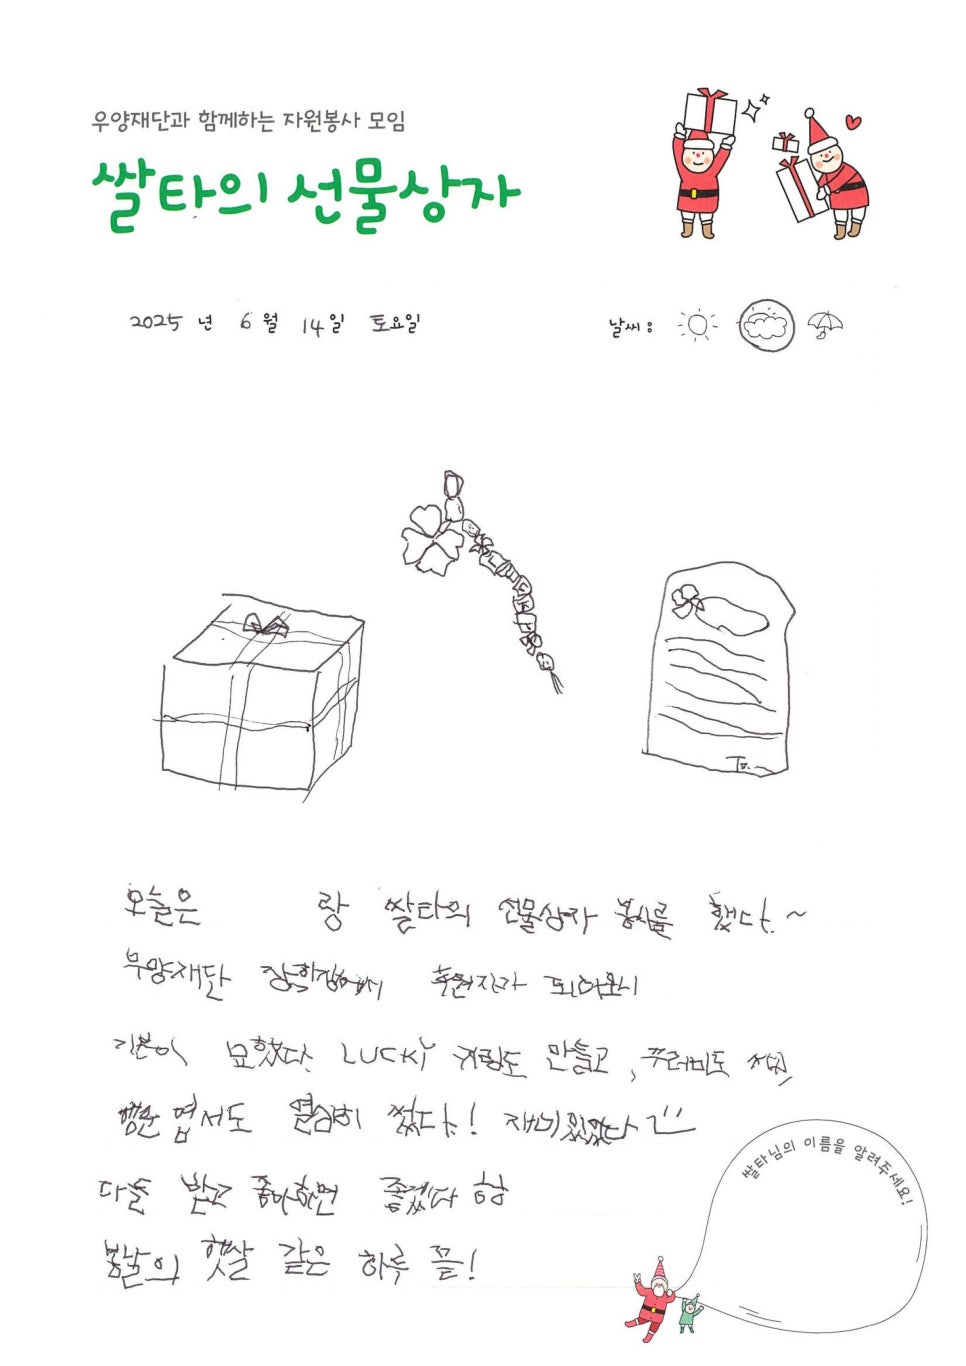 우양재단과 함께하는 자원봉사 모임
쌀타의 선물상자
2025 년 6 월 14일 토요일
날씨 :
To.
오늘은 랑 쌀타의 선물상자 봉사를 했다.~
우양재단 장학생에서 후원자가 되어보니
기분이 묘했다. LUCKY 키링도 만들고, 꾸러미도 싸고,
행운 엽서도 열심히 썼다! 재미있었다
다들 받고 좋아하면 좋겠다 히히
봄날의 햇살 같은 하루 끝!
쌀타님의 이름을 알려주세요!